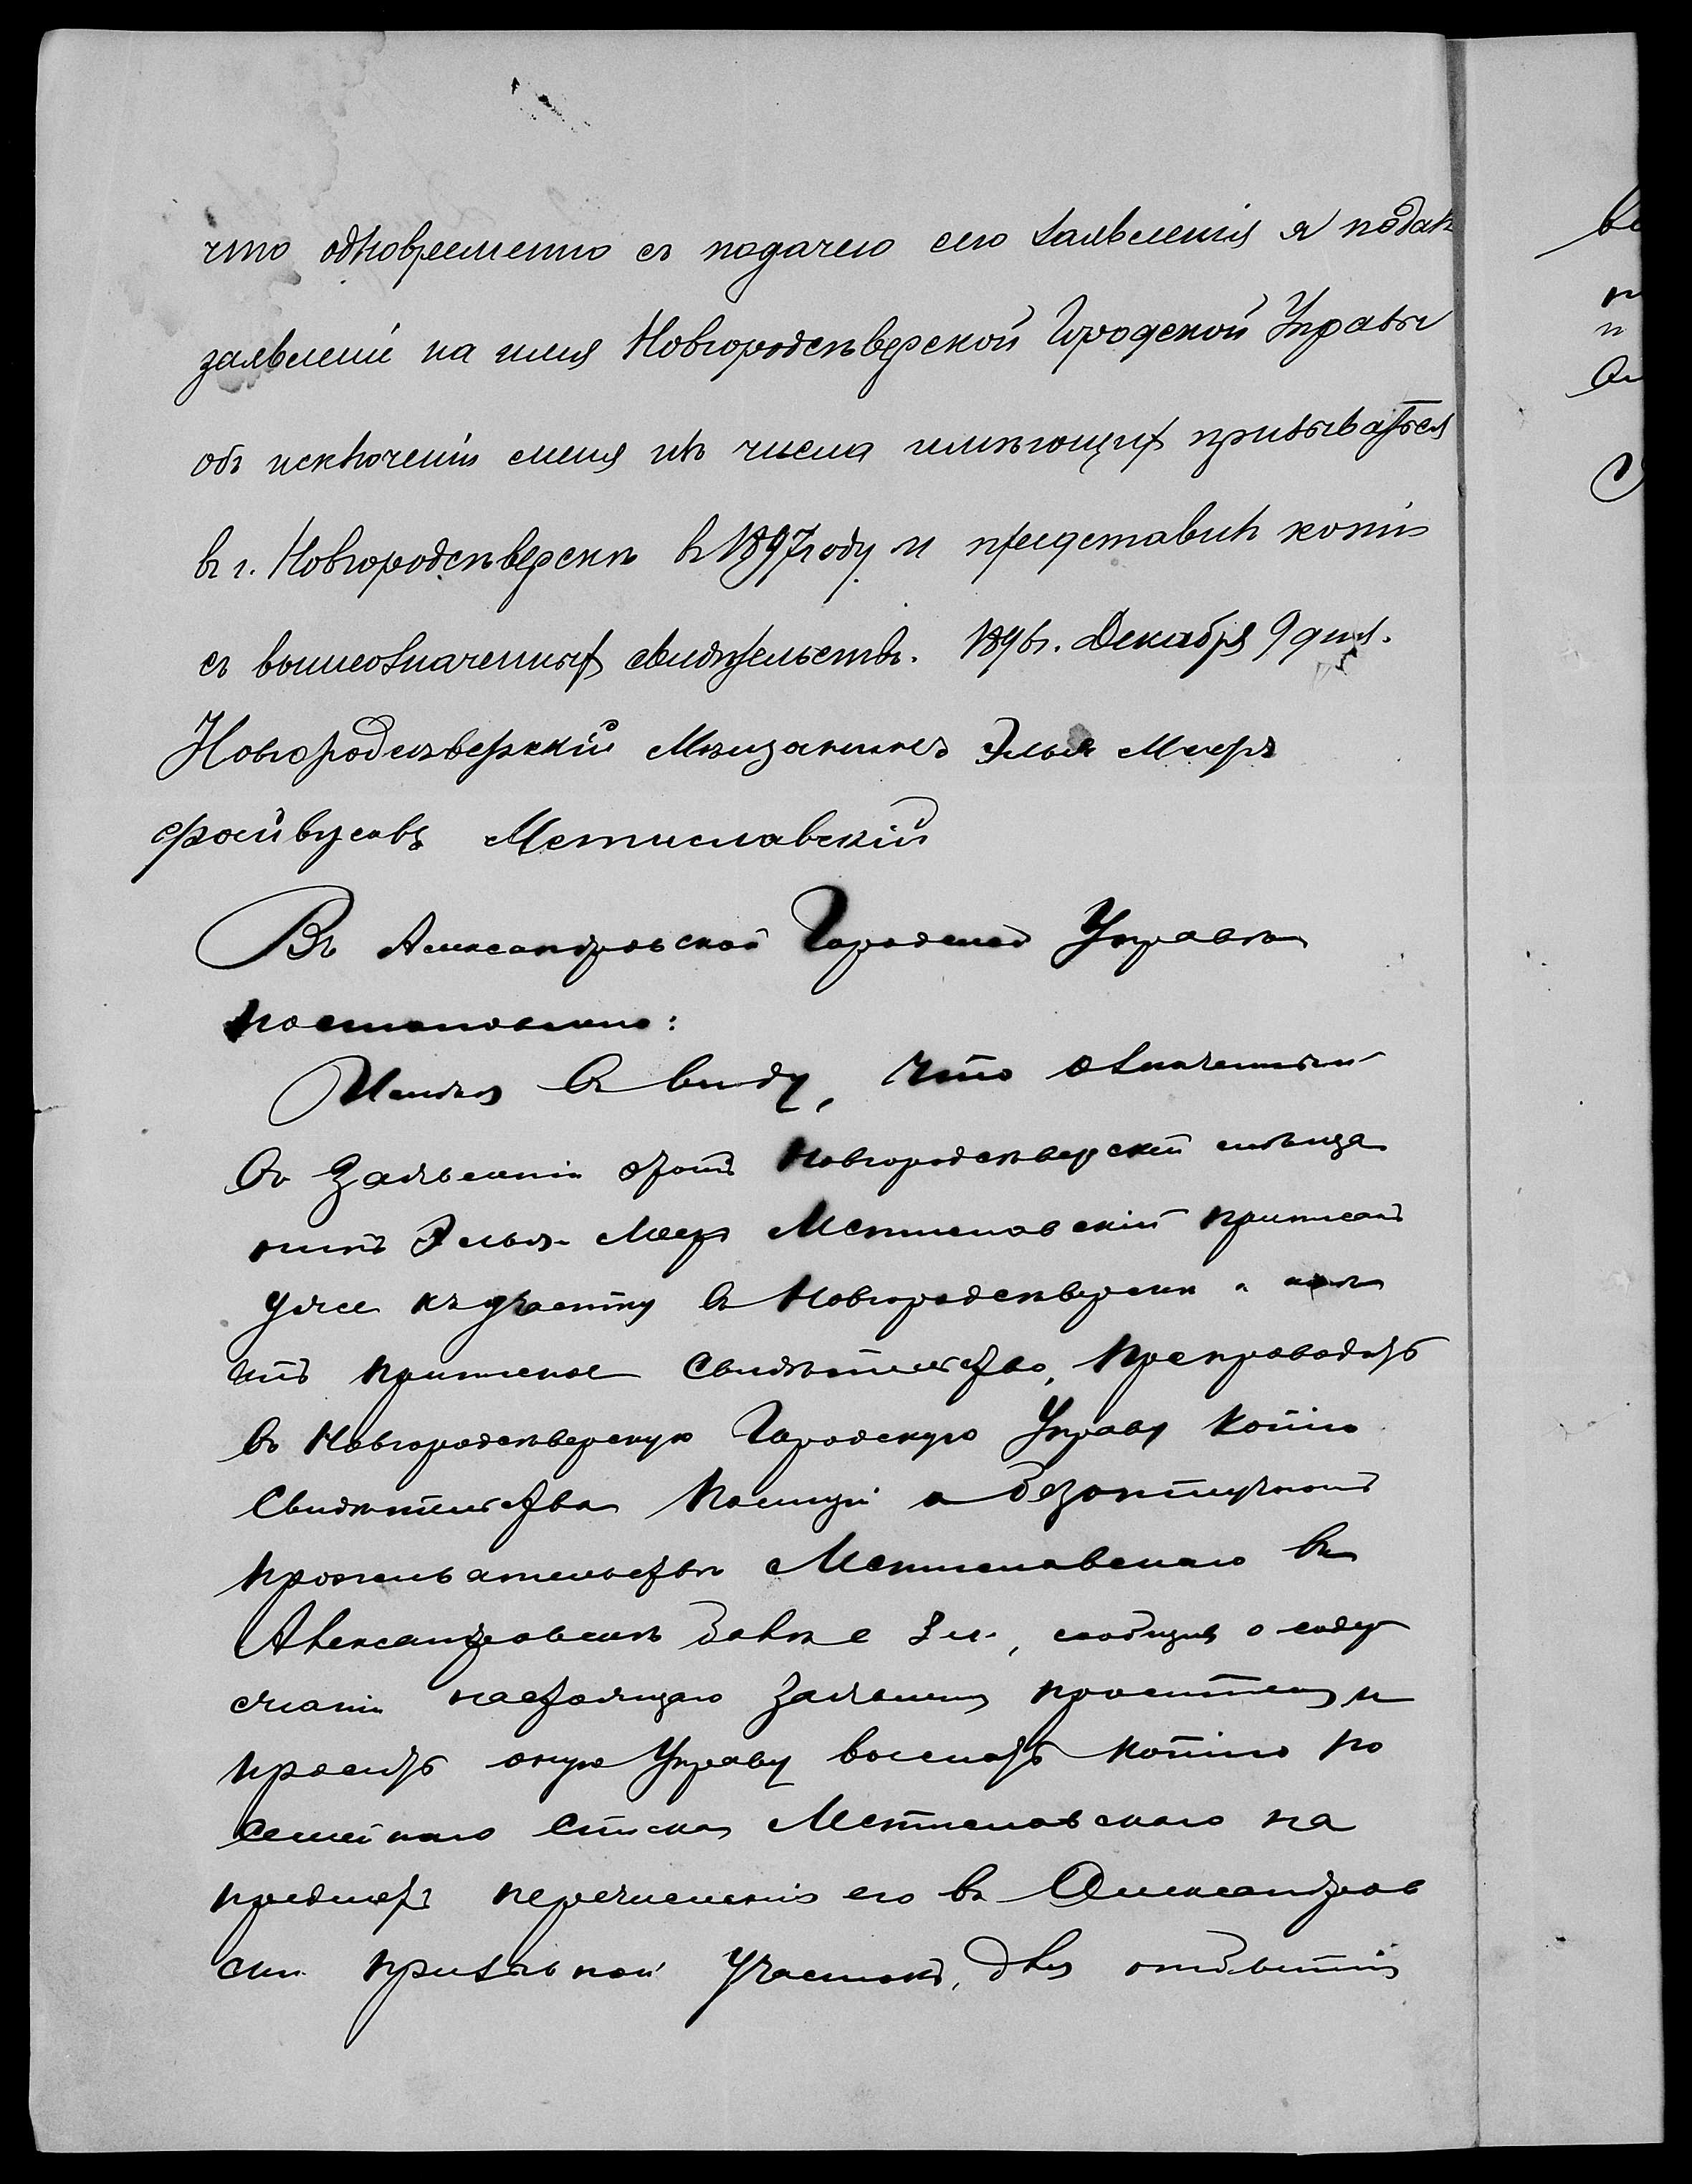 что одновременно съ подачею сего заявленія я подалъ
заявленіе на имя Новгородсѣверской Городской Управы
объ исключеніи меня изъ числа имѣющихъ призываться
въ г. Новгородсѣверскѣ въ 1897 году и представилъ копіи
съ вышеозначенныхъ свидѣтельствъ. 1896 г. Декабря 9 дня.
Новгородсѣверскій Мѣщанинъ Элья Мееръ
Файвусовъ Мстиславскій
Въ Александровской Городской Управѣ
постановлено:
Имѣя въ виду, что означенный
въ заявленіи этомъ Новгородсѣверскій мѣща
нинъ Элья-Мееръ Мстиславскій приписанъ
уже къ участку въ Новгородсѣверскѣ и
приписное свидѣтельство, препроводить
въ Новгородсѣверскую Городскую Управу копію
свидѣтельства Полиціи о безотлучномъ
проживательствѣ Мстиславскаго въ
Александровскѣ болѣе 3 м., сообщивъ о содер
жаніи настоящаго заявленія просителя и
просить оную Управу выслать копію по
семейнаго списка Мстиславскаго на
предметъ перечисленія его въ Александров
скій призывной участокъ, для отбытія